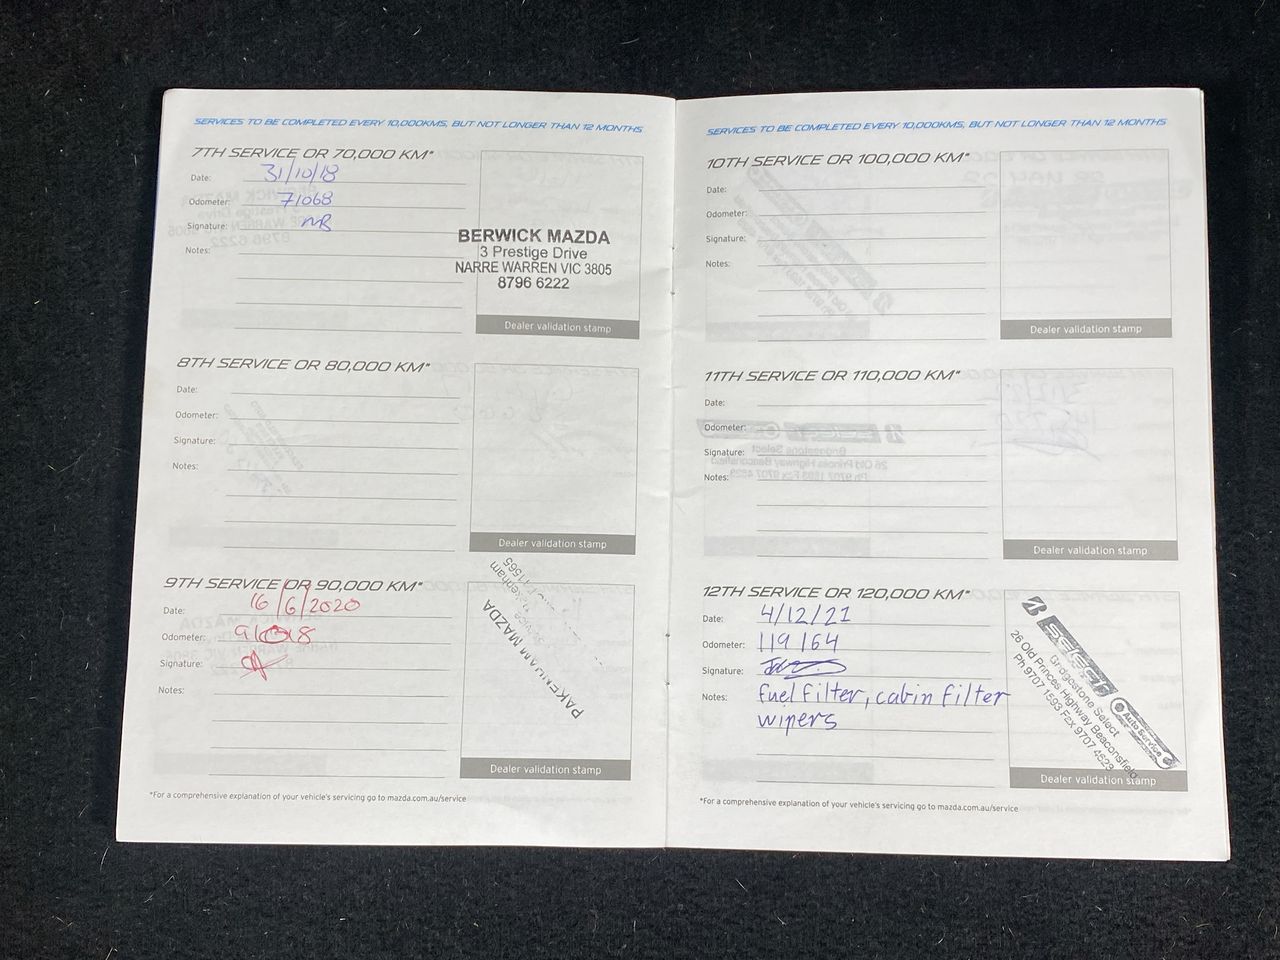 SERVICES TO BE COMPLETED EVERY 10,000KMS, BUT NOT LONGER THAN 12 MONTHS
7TH SERVICE OR 70,000 KM*
Date: 31/10/18
Odometer: 71068
Signature: MB
Notes:
BERWICK MAZDA
3 Prestige Drive
NARRE WARREN VIC 3805
8796 6222
Dealer validation stamp
8TH SERVICE OR 80,000 KM*
Date:
Odometer:
Signature:
Notes:
Dealer validation stamp
9TH SERVICE OR 90,000 KM*
Date: 16/6/2020
Odometer:
Signature:
Notes:
PAKENHAM MAZDA
Dealer validation stamp
*For a comprehensive explanation of your vehicle's servicing go to mazda.com.au/service
SERVICES TO BE COMPLETED EVERY 10,000KMS, BUT NOT LONGER THAN 12 MONTHS
10TH SERVICE OR 100,000 KM*
Date:
Odometer:
Signature:
Notes:
Dealer validation stamp
11TH SERVICE OR 110,000 KM*
Date:
Odometer:
Signature:
Notes:
Dealer validation stamp
12TH SERVICE OR 120,000 KM*
Date: 4/12/21
Odometer: 119164
Signature:
Notes: fuel filter, cabin filter
wipers
SELECT Auto Service
Bridgestone Select
26 Old Princes Highway Beaconsfield
Ph 9707 1593 Fax 9707 4629
Dealer validation stamp
*For a comprehensive explanation of your vehicle's servicing go to mazda.com.au/service